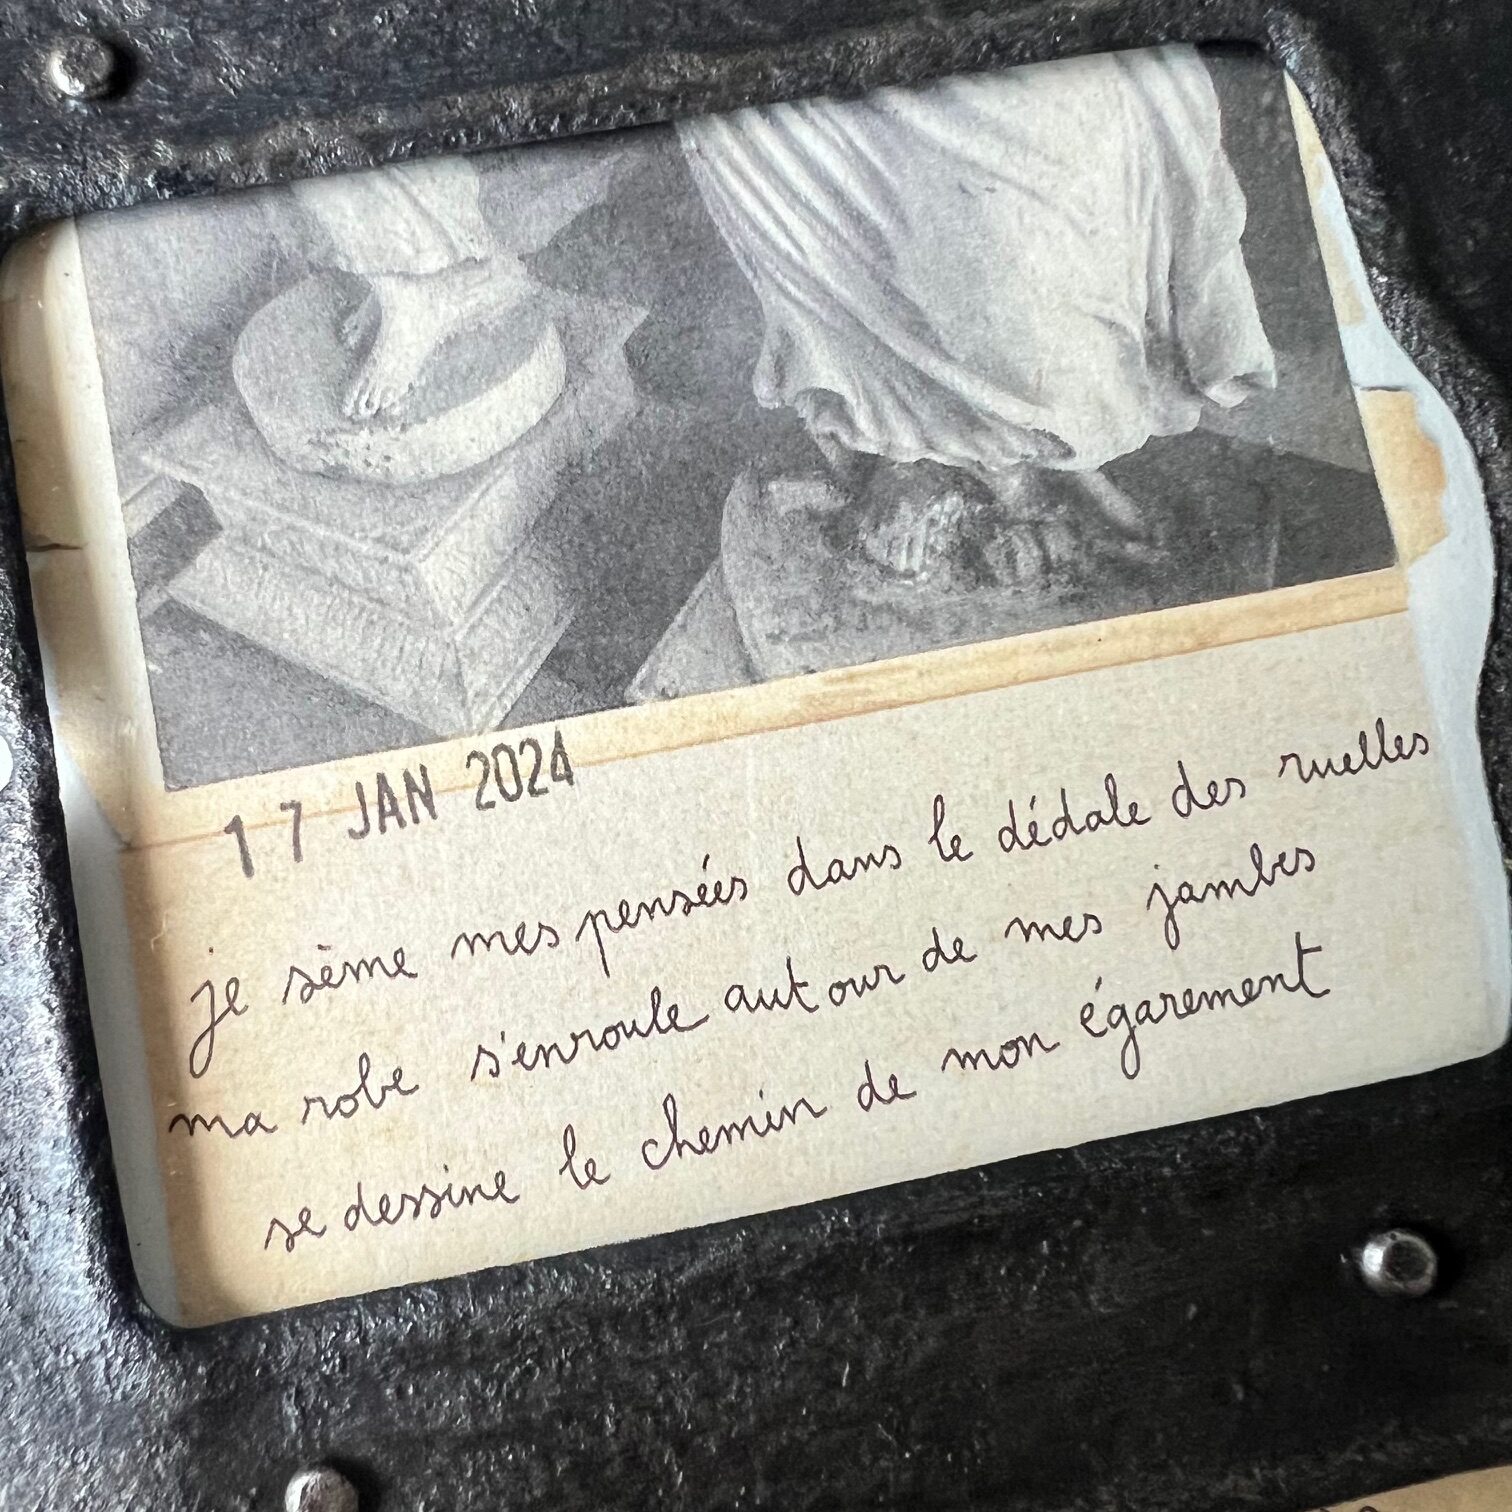 17 JAN 2024
je sème mes pensées dans le dédale des ruelles
ma robe s'enroule autour de mes jambes
se dessine le chemin de mon égarement